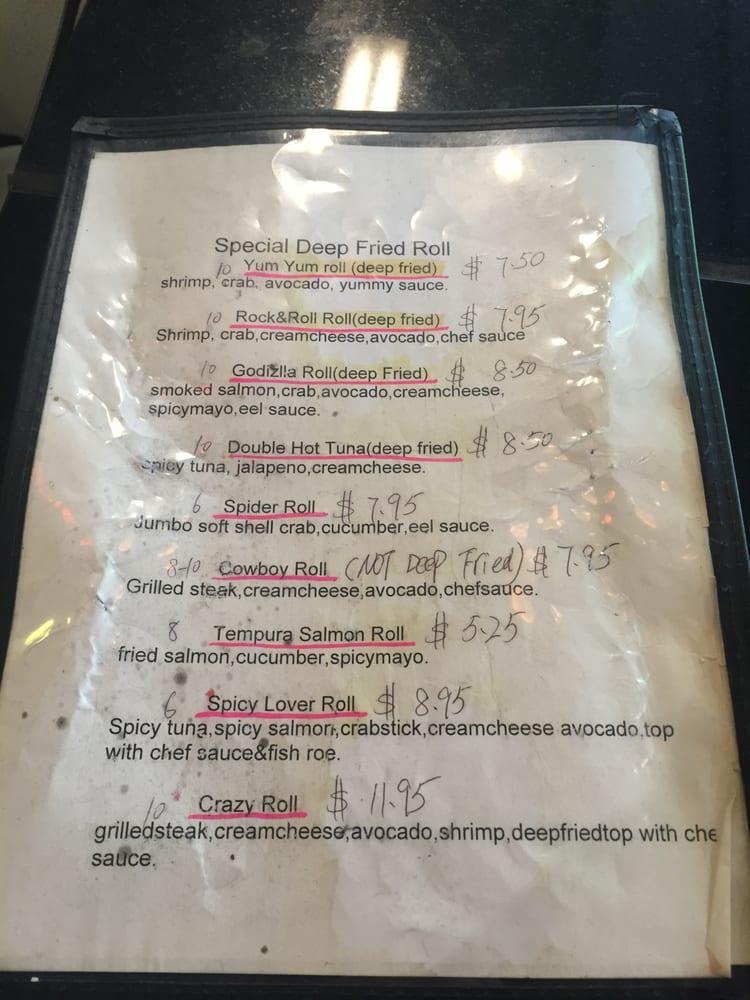 Special Deep Fried Roll
10 Yum Yum roll (deep fried) $ 7.50
shrimp, crab, avocado, yummy sauce.
10 Rock&Roll Roll(deep fried) $ 7.95
Shrimp, crab,creamcheese,avocado,chef sauce
10 Godizlla Roll(deep Fried) $ 8.50
smoked salmon,crab,avocado,creamcheese,
spicymayo,eel sauce.
10 Double Hot Tuna(deep fried) $ 8.50
spicy tuna, jalapeno,creamcheese.
6 Spider Roll $ 7.95
Jumbo soft shell crab,cucumber,eel sauce.
8-10 Cowboy Roll (NOT DEEP Fried) $ 7.95
Grilled steak,creamcheese,avocado,chefsauce.
8 Tempura Salmon Roll $ 5.25
fried salmon,cucumber,spicymayo.
6 Spicy Lover Roll $ 8.95
Spicy tuna,spicy salmon,crabstick,creamcheese avocado,top
with chef sauce&fish roe.
10 Crazy Roll $ 11.95
grilledsteak,creamcheese,avocado,shrimp,deepfriedtop with che
sauce.